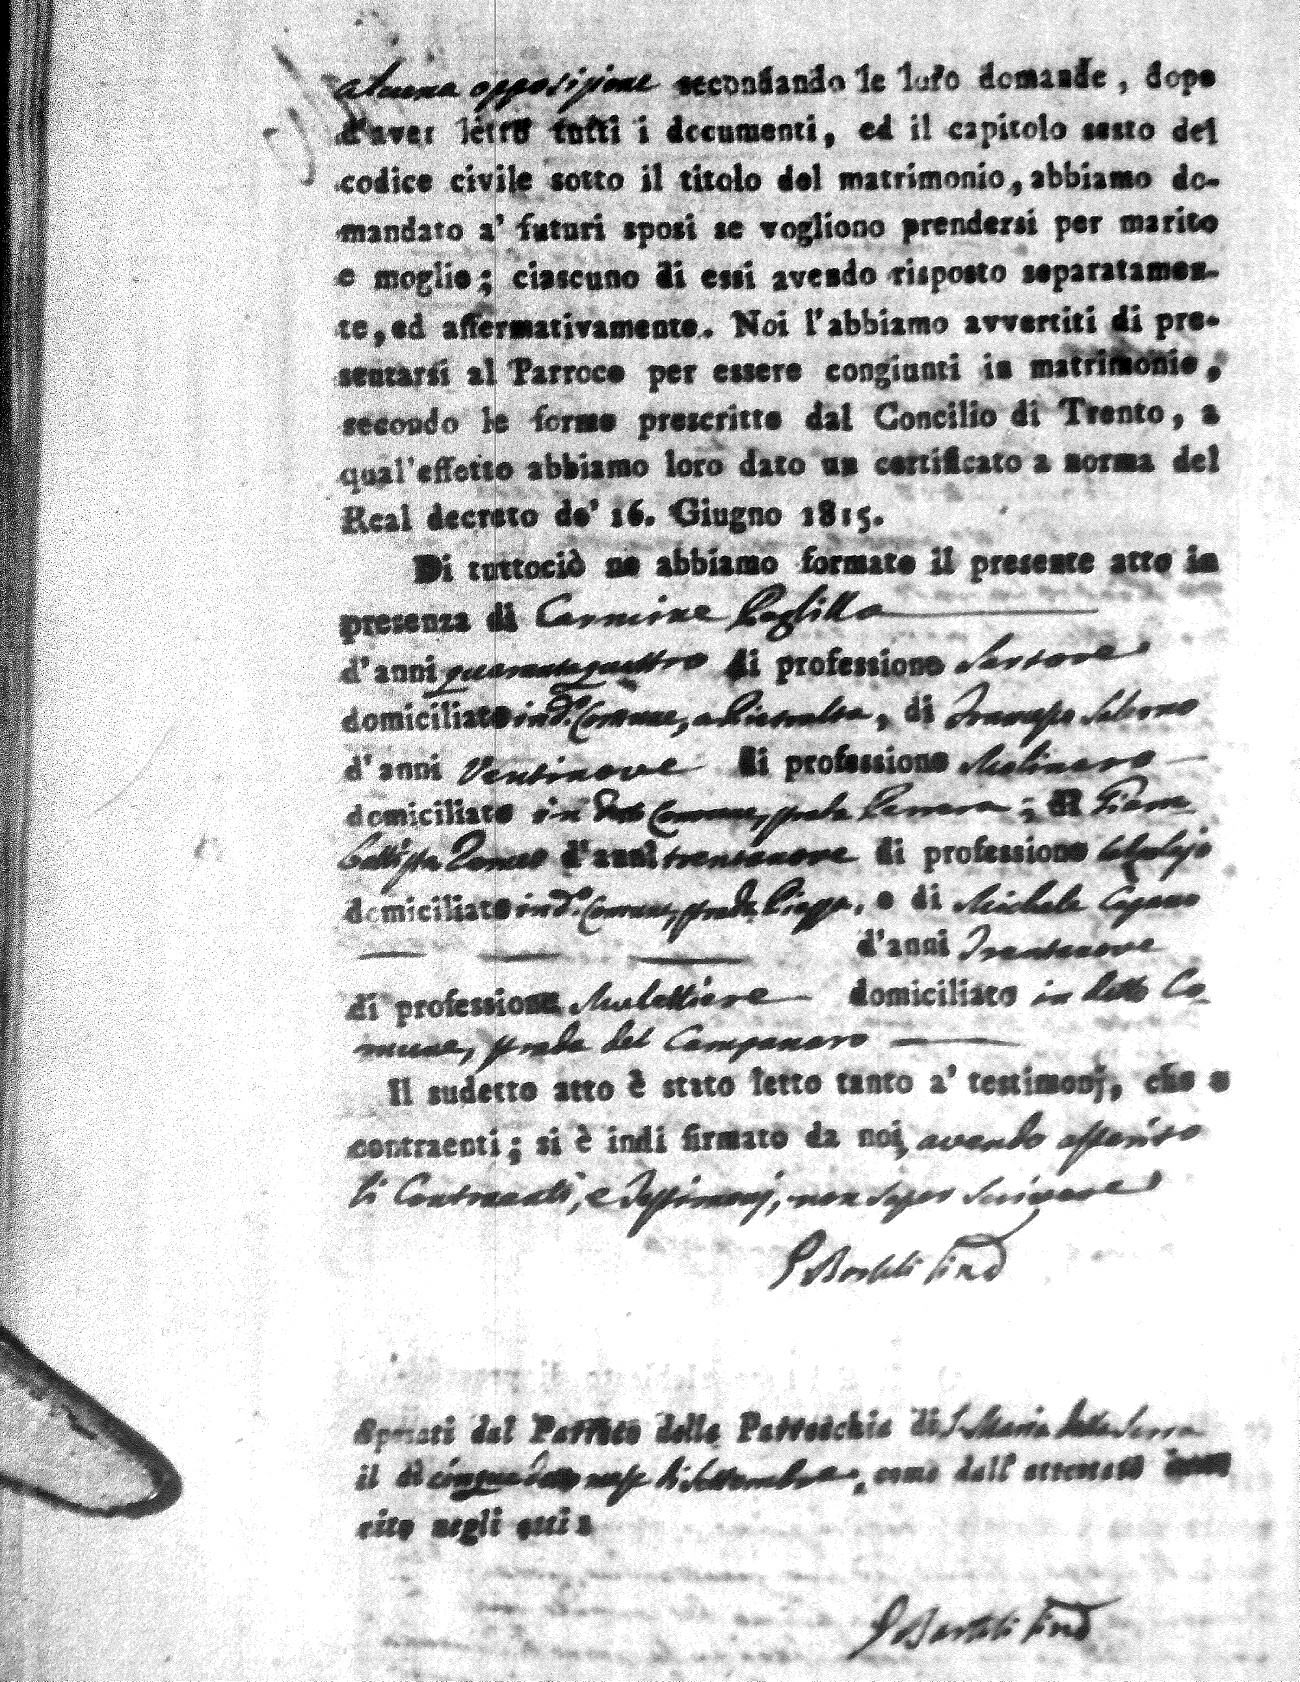 alcuna opposizione secondando le loro domande, dopo
d'aver letto tutti i documenti, ed il capitolo sesto del
codice civile sotto il titolo del matrimonio, abbiamo do-
mandato a' futuri sposi se vogliono prendersi per marito
e moglie; ciascuno di essi avendo risposto separatamen-
te, ed affermativamente. Noi l'abbiamo avvertiti di pre-
sentarsi al Parroco per essere congiunti in matrimonio,
secondo le forme prescritte dal Concilio di Trento, a
qual'effetto abbiamo loro dato un certificato a norma del
Real decreto de' 16. Giugno 1815.
Di tuttociò ne abbiamo formato il presente atto in
presenza di Carmine
d'anni quarantaquattro di professione Sartore
domiciliato in d.o Comune, a Pietralta, di
d'anni Ventinove di professione Molinaro
domiciliato in detto Comune, strada; di Giam
battista d'anni trentanove di professione
domiciliato in d.o Comune, strada Piazza, e di Michele
d'anni Trentanove
di professione Mulattiere domiciliato in detto Co-
mune, strada del Campanaro
Il sudetto atto è stato letto tanto a' testimonj, che a
contraenti; si è indi firmato da noi, avendo asserito
li Contraenti, e Testimonj, non saper scrivere
Sind
Sposati dal Parroco della Parrocchia di S. Maria della Serra
il dì cinque detto mese di Settembre, come dall' attestato inse
rito negli atti
Sind